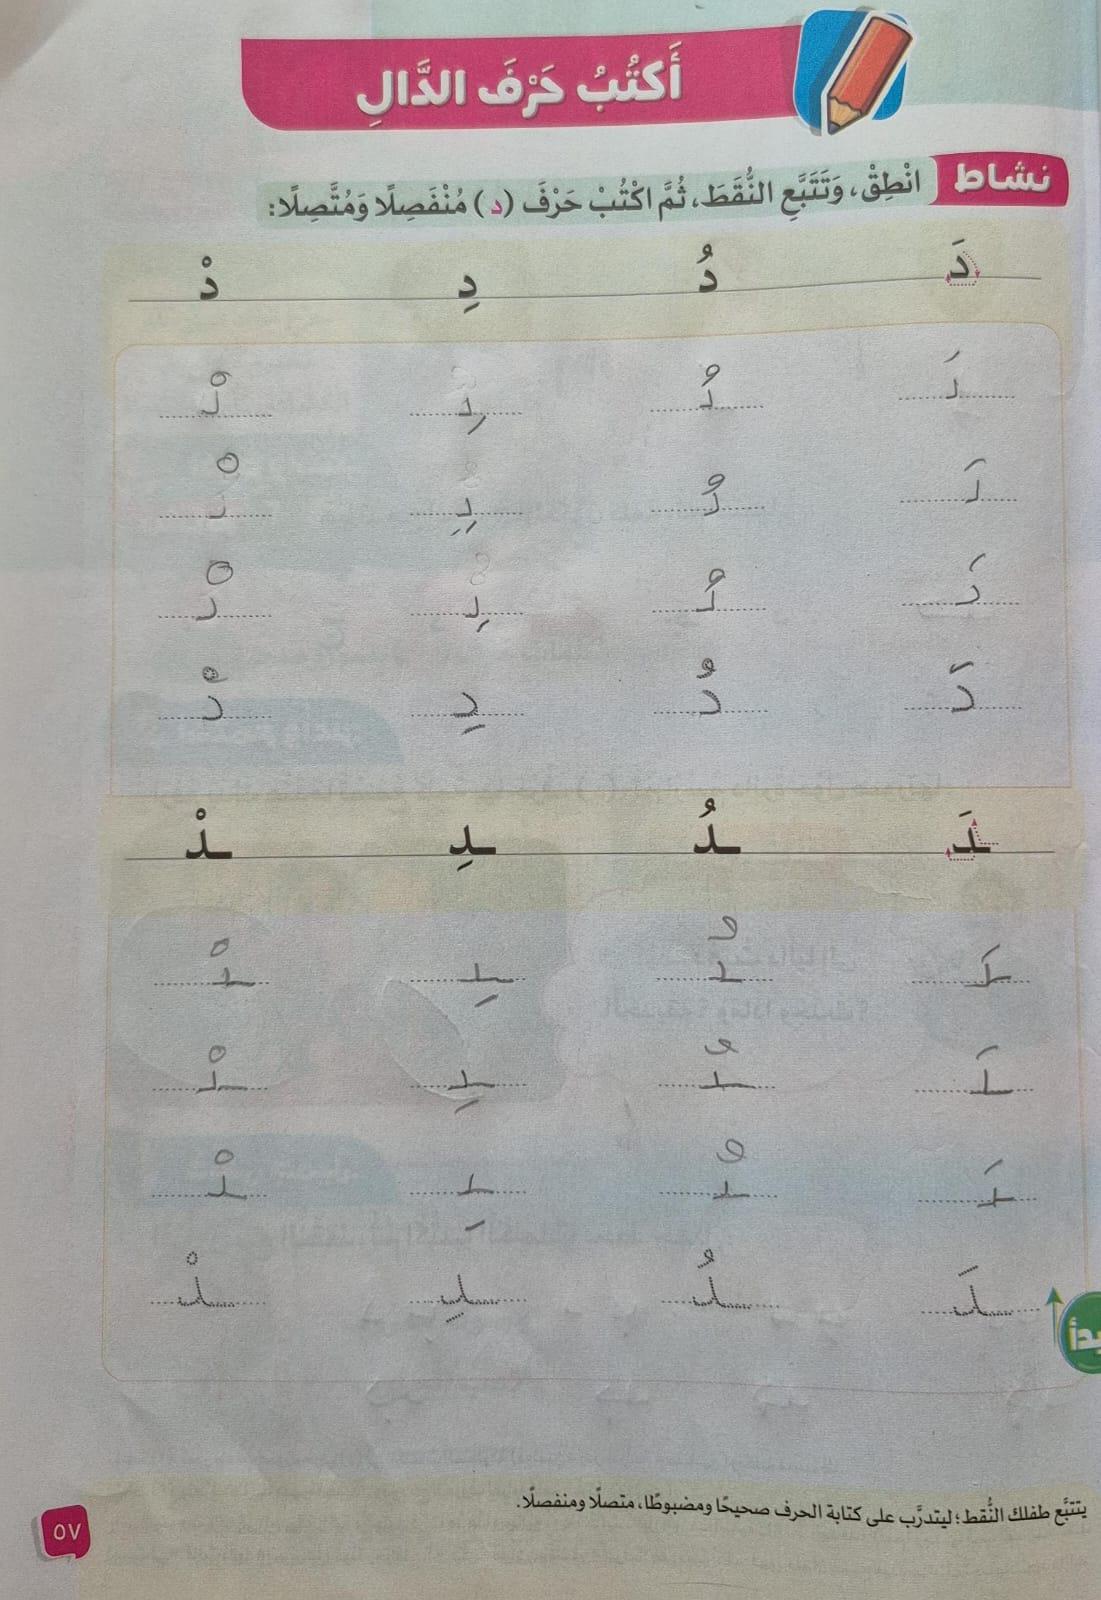 أَكتُبُ حَرْفَ الدَّالِ
نشاط انْطِقْ، وَتَتَبَّعِ النُّقَطَ، ثُمَّ اكْتُبْ حَرْفَ (د) مُنْفَصِلًا وَمُتَّصِلًا:
دَ دُ دِ دْ
دَ دُ دِ دْ
دَ دُ دِ دْ
دَ دُ دِ دْ
دَ دُ دِ دْ
ـدَ ـدُ ـدِ ـدْ
ـدَ ـدُ ـدِ ـدْ
ـدَ ـدُ ـدِ ـدْ
ـدَ ـدُ ـدِ ـدْ
ـدَ ـدُ ـدِ ـدْ
يتتبَّع طفلك النُّقط؛ ليتدرَّب على كتابة الحرف صحيحًا ومضبوطًا، متصلًا ومنفصلًا.
٥٧